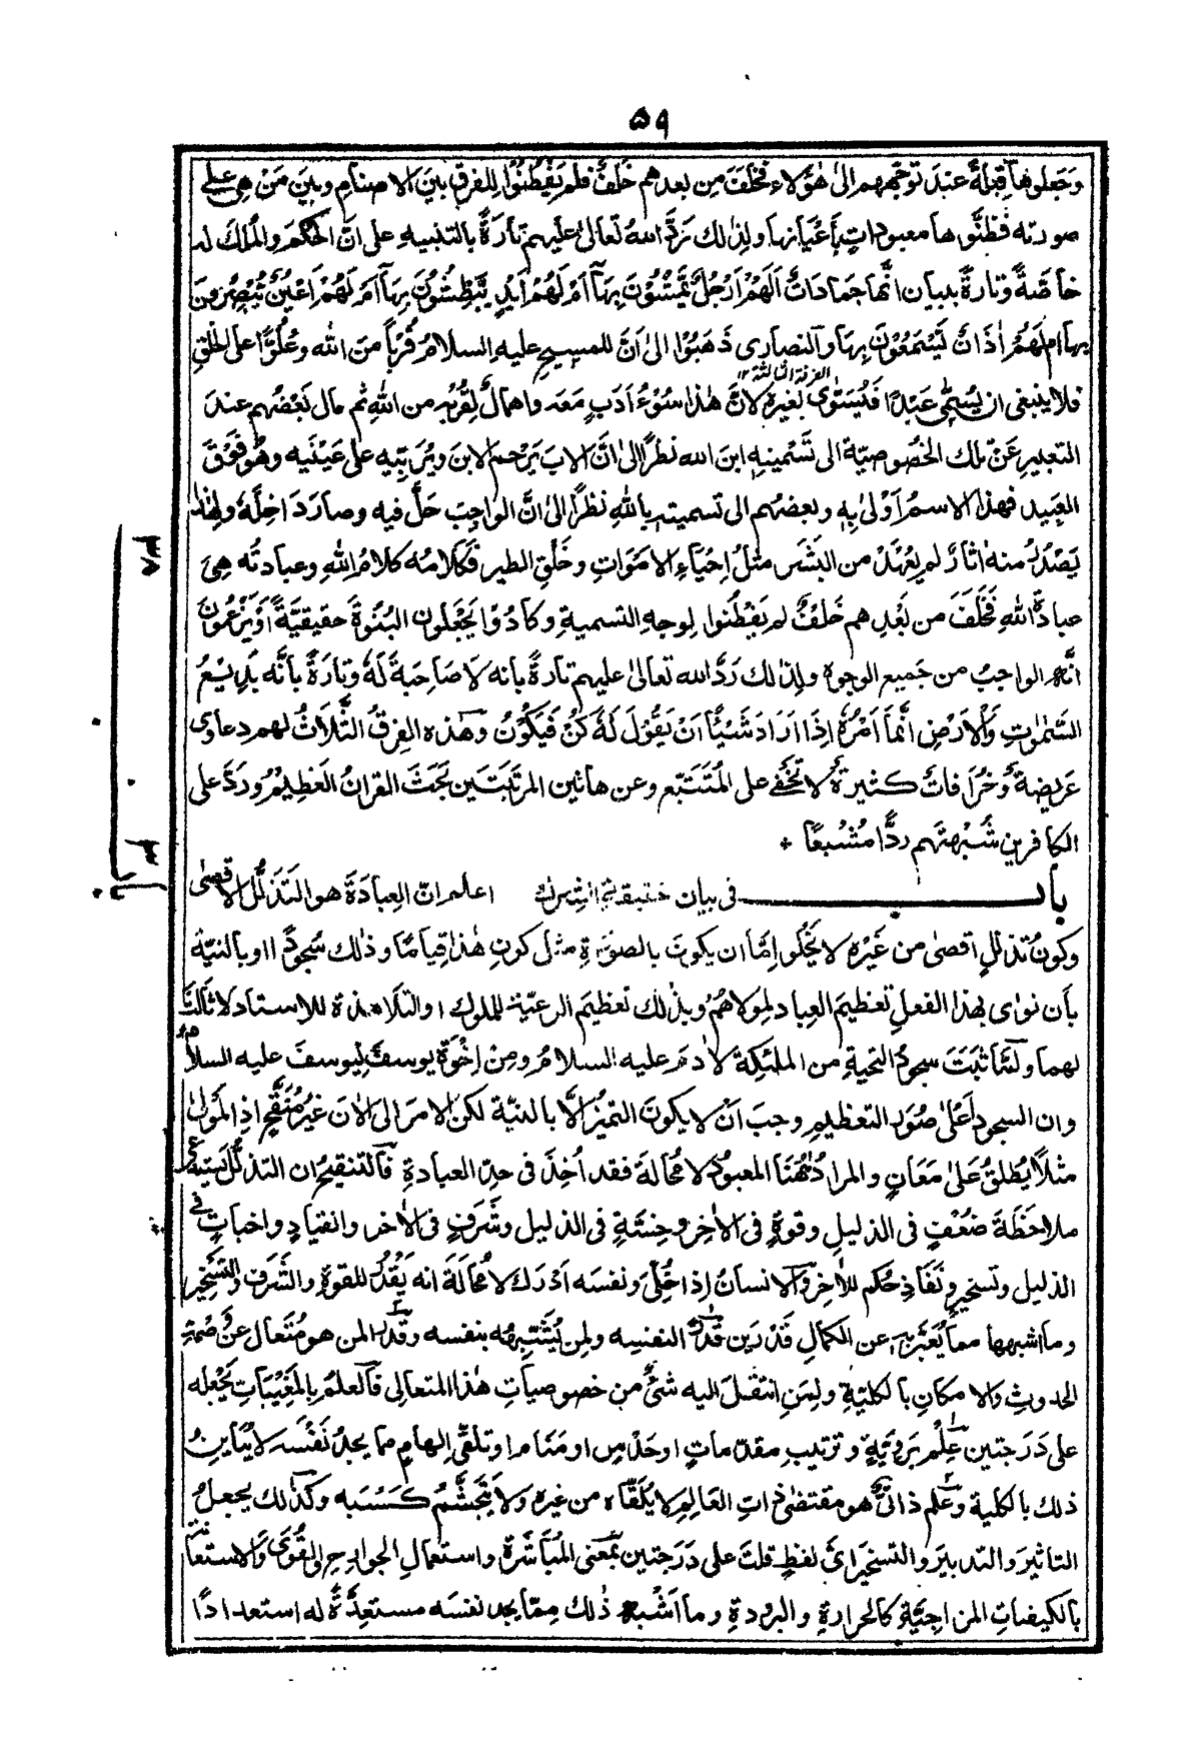 ٥٩
وَجَعلوها قِبلةً عندَ توجّههم الىٰ هٰؤلاء فخلَفَ مِن بعدهم خَلفٌ فلم يَفْطُنُوْا للفرق بينَ الاصنامِ وبينَ مَنْ هِىَ علىٰ
صورته فظنّوها معبوداتٍ بأعْيَانها ولِذٰلك رَدَّ اللهُ تَعالىٰ عليهم تارةً بالتنبيهِ على انَّ الحُكمَ والمُلكَ له
خاصّةً وتارةً ببيان انَّها جماداتٌ اَلَهُمْ اَرْجُلٌ يَّمْشُوْنَ بِهَآ اَمْ لَهُمْ اَيْدٍ يَّبْطِشُوْنَ بِهَآ اَمْ لَهُمْ اَعْيُنٌ يُّبْصِرُوْنَ
بِهَا اَمْ لَهُمْ اٰذَانٌ يَّسْمَعُوْنَ بِهَا والنصارى ذَهَبُوْا الىٰ اَنَّ للمسيحِ عليهِ السلامُ قُرْباً منَ الله وعُلُوًّا على الخلقِ
الفرقة الثالثة ١٢
فلا ينبغى ان يُسَمّٰى عَبْدًا فيُسَوّٰى بغيرِهٖ لانَّ هٰذا سُوْءُ اَدَبٍ مَعَه واهمالٌ لِقُرْبِهٖ من اللهِ ثم مال بَعْضُهم عندَ
التعبيرِ عَنْ تلك الخُصُوصيّة الى تَسْميتِهٖ ابنَ الله نظرًا الىٰ انَّ الابَ يَرْحم الابنَ ويُرَبّيهِ علىٰ عَيْنَيه وهُو فَوْقَ
العَبِيد فهذا الاسمُ اَوْلىٰ بِهٖ وبعضُهم الى تسميتهٖ باللهِ نظرًا الىٰ انَّ الواجِبَ حَلَّ فيه وصارَ دَاخِلَهٗ ولِهٰذا
يَصْدُرُ منهُ اٰثارٌ لم يُعْهَدْ من البَشَر مثلُ اِحْيَاءِ الامَوَاتِ وخَلْقِ الطير فكَلامُه كلامُ اللهِ وعبادتُه هِىَ
عبادةُ اللهِ فخَلَفَ من بَعْدِهم خَلْفٌ لم يَفْطُنوا لِوجهِ التسميةِ وكادُوْا يَجْعَلون البُنُوّةَ حقيقيّةً اَوْ يَزْعُمُونَ
انَّهُ الواجبُ من جَميع الوجوهِ ولِذٰلك رَدَّ الله تعالىٰ عليهم تارةً بانه لا صَاحِبةَ لَهٗ وتارَةً بأنَّه بَدِيْعُ
السَّمٰوٰتِ وَالْاَرْضِ اِنَّمَآ اَمْرُهٗٓ اِذَآ اَرَادَ شَيْئًا اَنْ يَقُوْلَ لَهٗ كُنْ فَيَكُوْنُ وهٰذه الفِرَقُ الثَّلٰاثُ لهم دعاوى
عَرِيضةٌ وخُرَافاتٌ كثيرةٌ لا تخفٰى على المُتَتبّع وعن هاتين المرتَبَتَين بَحَثَ القرانُ العَظِيْمُ ورَدَّ على
الكافرين شُبْهتَهم ردًّا مُشْبِعًا ٭
٣٨
٣
باب ـــــ فى بيان حقيقة الشرك اعلم انّ العِبادَةَ هو التَذلّلُ الاقصٰى
وكونُ تذللٍ اقصىٰ من غَيْرِهٖ لا يَخْلُو اِمَّا ان يكونَ بالصوْرةِ مثل كونِ هٰذا قِيامًا وذٰلك سُجودًا او بالنيّةِ
بأن نوٰى بهذا الفعلِ تعظيمَ العِبادِ لِمولاهُمْ وبذٰلك تعظيمَ الرعيّة للملوك او التلامذة للاستاد لا ثالثَ
لهما ولَمّا ثبَتَ سجودُ التحيةِ من الملئِكةِ لآدمَ عليه السلامُ ومِنْ اِخْوَةِ يوسفَ لِيوسفَ عليه السلامُ
وان السجودَ اَعْلىٰ صُوَرِ التعظيمِ وجبَ اَنْ لا يكونَ التميّزُ اِلّا بالنيّة لكن الامرَ الى الآنَ غيرُ مُنَقَّحٍ اِذِ المَولىٰ
مثلًا يُطلَقُ عَلىٰ مَعَانٍ والمرادُ هٰهُنَا المعبودُ لا مُحالةَ فقد اُخِذَ فى حدِّ العبادةِ فالتنقيحُ ان التذلُّلَ يَستدعى
ملاحَظةَ ضُعْفٍ فى الذليلِ وقوةٍ فى الآخِرِ وخِسّةٍ فى الذليل وشَرَفٍ فى الآخر وانقيادٍ واخباتٍ فى
الذليل وتسخيرٍ ونَفَاذِ حُكمٍ للآخرِ والانسانُ اِذا خُلِّىَ ونفسَه اَدْرَكَ لا مُحَالَةَ انه يُقَدِّرُ للقوةِ والشَّرَفِ والتَسْخِير
وما اشبهها مما يُعَبَّرُ بهٖ عن الكمالِ قَدْرَين قَدْرًا لنفسِه ولِمن يُشْبِهُه بنفسه وقَدْرًا لمن هو مُتَعالٍ عنْ وَصْمَةِ
الحدوثِ والامكانِ بالكلّيةِ ولِمَنِ انتقلَ اليه شئٌ من خصوصياتِ هٰذا المتعالى فالعلمُ بالمُغيَّبَاتِ يَجْعَله
على دَرَجتين عِلْمٍ بِرَوِيّةٍ وترتيبِ مقدّماتٍ او حَدْسٍ او مَنَامٍ او تلقّى اِلهامٍ مما يجدُ نَفْسَه لا يُبَاينُ
ذلك بالكلية وعلمٍ ذاتىٍّ هو مقتضىٰ ذاتِ العَالِمِ لا يَلَقّاه من غيرهٖ ولا يَتَجَشَّمُ كَسْبَه وكذٰلك يجعلُ
التاثيرَ والتدبيرَ والتسخيرَ اىَّ لفظٍ قلتَ على دَرَجتين بمعنى المُبَاشَرةِ واستعمالِ الجوارحِ والقُوٰى والاستعانة
بالكيفياتِ المزاجيّةِ كالحرارةِ والبرودةِ وما اَشْبَهَ ذٰلك مِمّا يجد نفسَه مستعِدّةً له استعدادًا